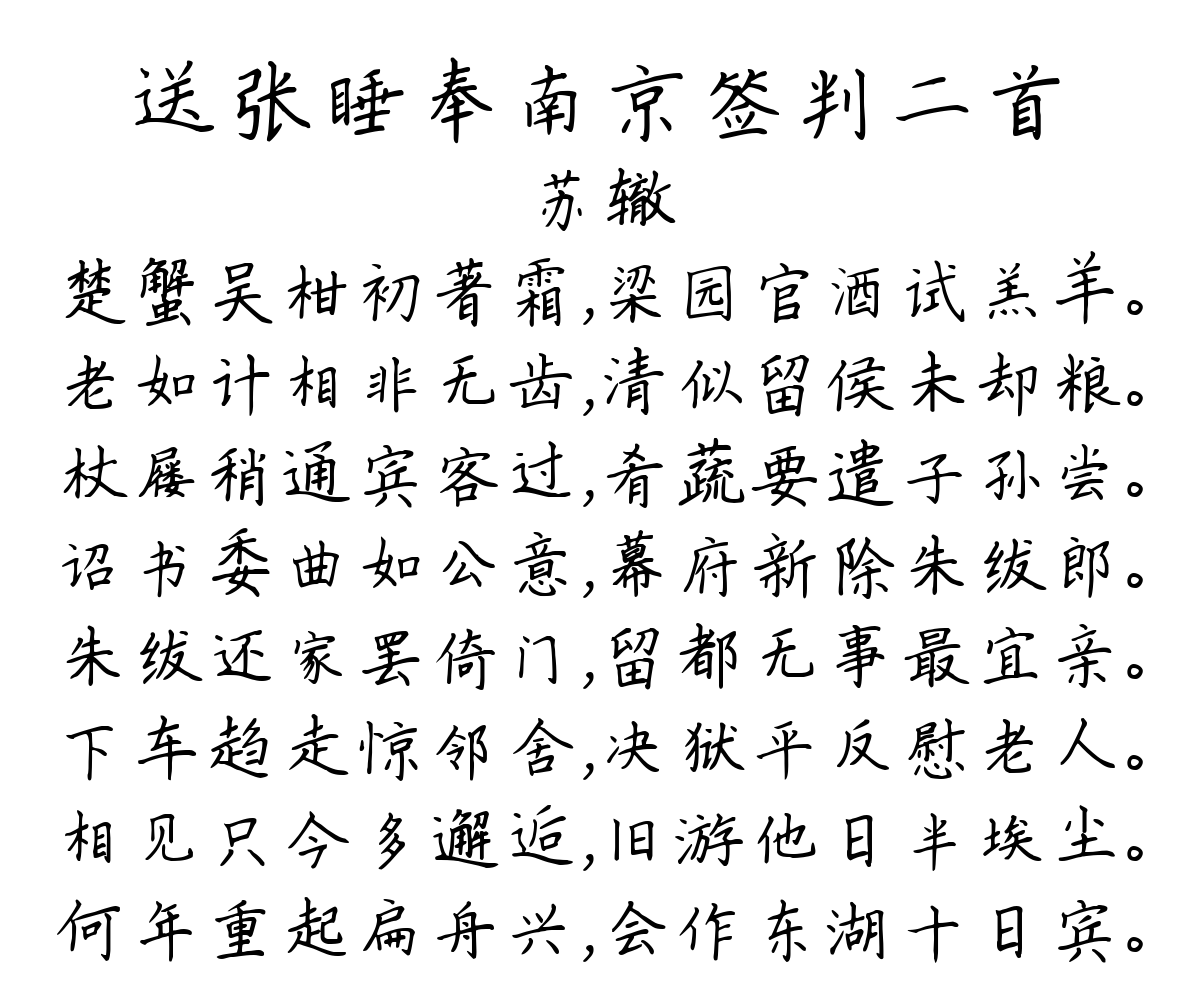 送张睡奉南京签判二首
苏辙
楚蟹吴柑初著霜,梁园官酒试羔羊。
老如计相非无齿,清似留侯未却粮。
杖屦稍通宾客过,肴蔬要遣子孙尝。
诏书委曲如公意,幕府新除朱绂郎。
朱绂还家罢倚门,留都无事最宜亲。
下车趋走惊邻舍,决狱平反慰老人。
相见只今多邂逅,旧游他日半埃尘。
何年重起扁舟兴,会作东湖十日宾。